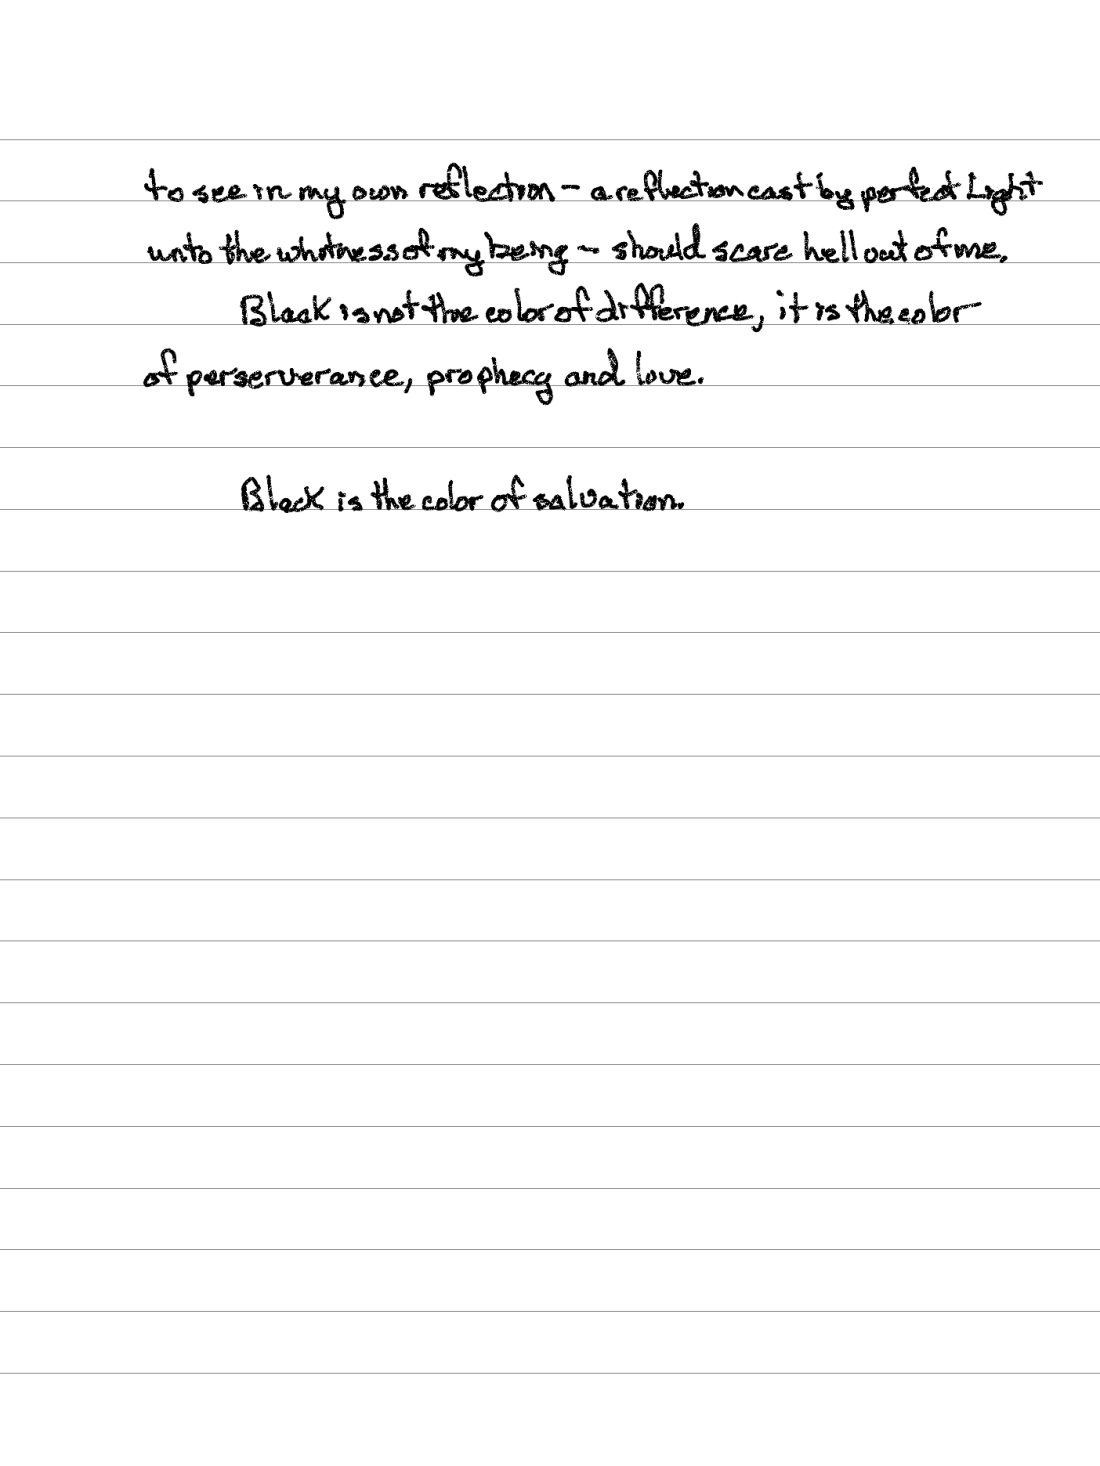 to see in my own reflection - a reflection cast by perfect Light
unto the whiteness of my being - should scare hell out of me.
Black is not the color of difference, it is the color
of perserverance, prophecy and love.
Black is the color of salvation.